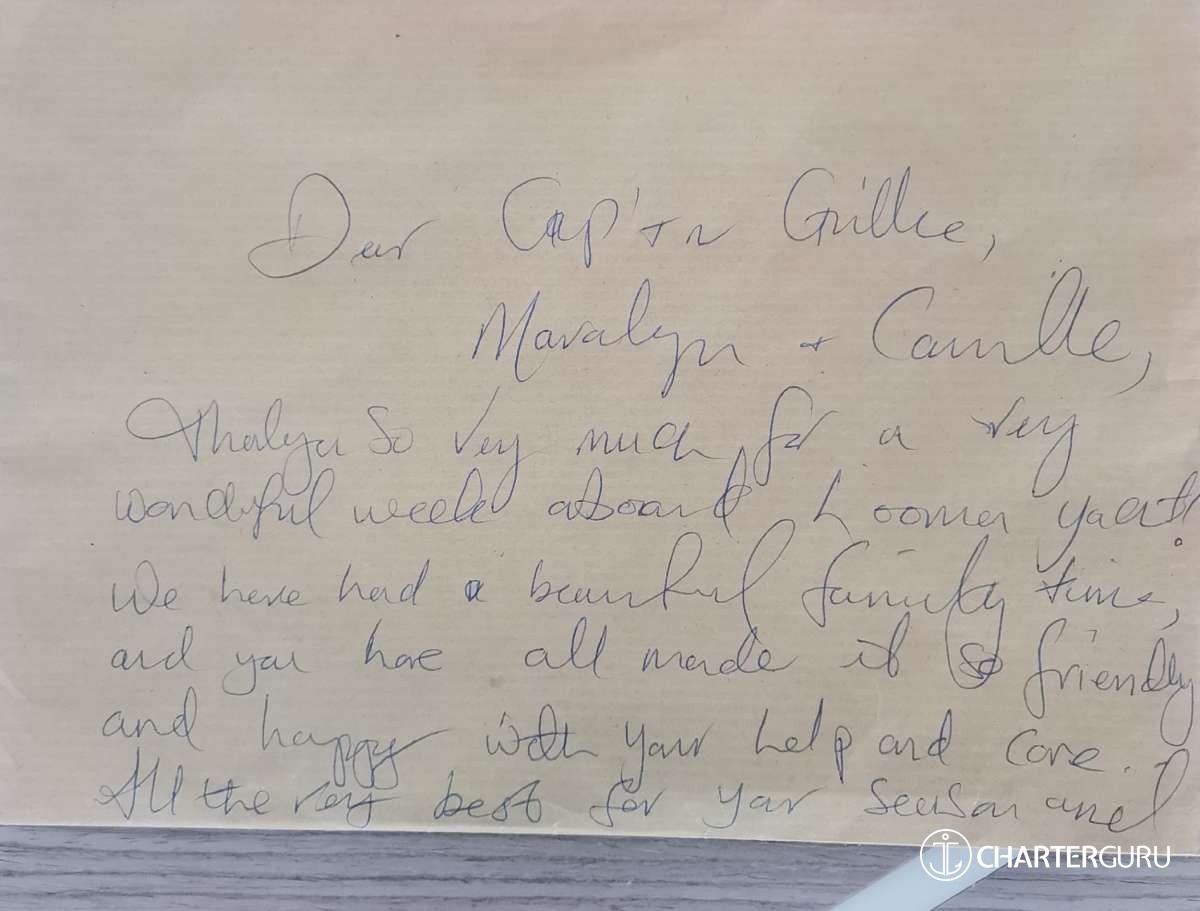 Dear Cap'tn
Maralyn + Camille,
Thankyou so very much for a very
wonderful week aboard yacht!
We have had a beautiful family time,
and you have all made it so friendly
and happy with your help and care.
All the very best for your season and
CHARTERGURU